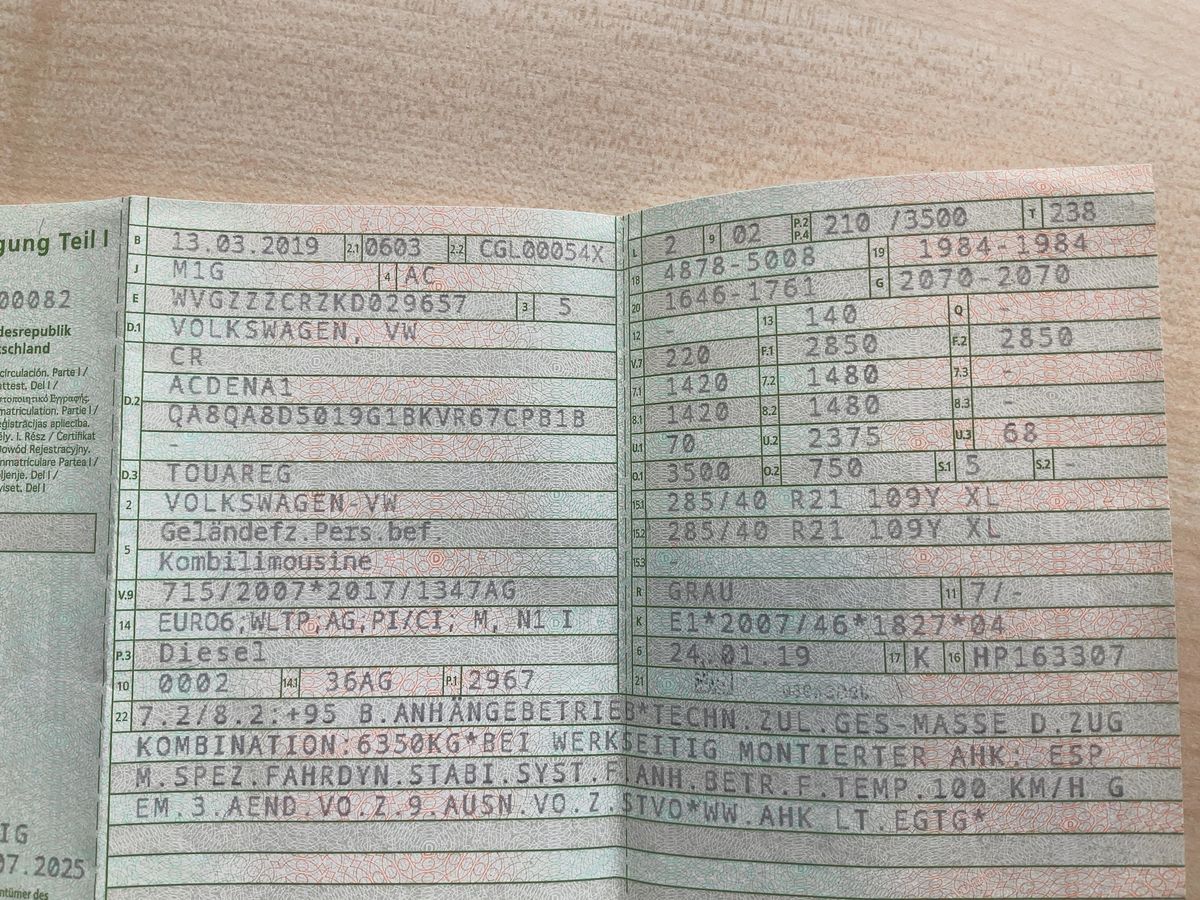 gung Teil I
00082
desrepublik
tschland
circulación. Parte I /
attest. Del I /
matriculation. Partie I /
eģistrācijas apliecība.
ély. I. Rész / Certifikat
Dowód Rejestracyjny.
nmatriculare Partea I /
oljenje. Del I /
viset. Del I
IG
07.2025
ntümer des
B 13.03.2019 2.1 0603 2.2 CGL00054X
J M1G 4 AC
E WVGZZZCRZKD029657 3 5
D.1 VOLKSWAGEN, VW
CR
D.2 ACDENA1
QA8QA8D5019G1BKVR67CPB1B
-
D.3 TOUAREG
2 VOLKSWAGEN-VW
5 Geländefz.Pers.bef.
Kombilimousine
V.9 715/2007*2017/1347AG
14 EURO6;WLTP;AG;PI/CI; M, N1 I
P.3 Diesel
10 0002 14.1 36AG P.1 2967
L 2 9 02 P.2 P.4 210 /3500 T 238
18 4878-5008 19 1984-1984
20 1646-1761 G 2070-2070
12 - 13 140 Q -
V.7 220 F.1 2850 F.2 2850
7.1 1420 7.2 1480 7.3 -
8.1 1420 8.2 1480 8.3 -
U.1 70 U.2 2375 U.3 68
O.1 3500 O.2 750 S.1 5 S.2 -
15.1 285/40 R21 109Y XL
15.2 285/40 R21 109Y XL
15.3 -
R GRAU 11 7/-
K E1*2007/46*1827*04
6 24.01.19 17 K 16 HP163307
21
22 7.2/8.2:+95 B.ANHÄNGEBETRIEB*TECHN.ZUL.GES-MASSE D.ZUG
KOMBINATION:6350KG*BEI WERKSEITIG MONTIERTER AHK: ESP
M.SPEZ.FAHRDYN.STABI.SYST.F.ANH.BETR.F.TEMP.100 KM/H G
EM.3.AEND.VO.Z.9.AUSN.VO.Z.STVO*WW.AHK LT.EGTG*